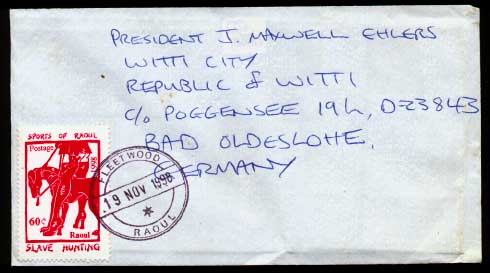 PRESIDENT J. MAXWELL EHLERS
WITTI CITY
REPUBLIC of WITTI
C/o POGGENSEE 19h, D-23843
BAD OLDESLOHE,
GERMANY
SPORTS OF RAOUL
Postage
1998
60¢
Raoul
SLAVE HUNTING
FLEETWOOD
19 NOV 1998
RAOUL